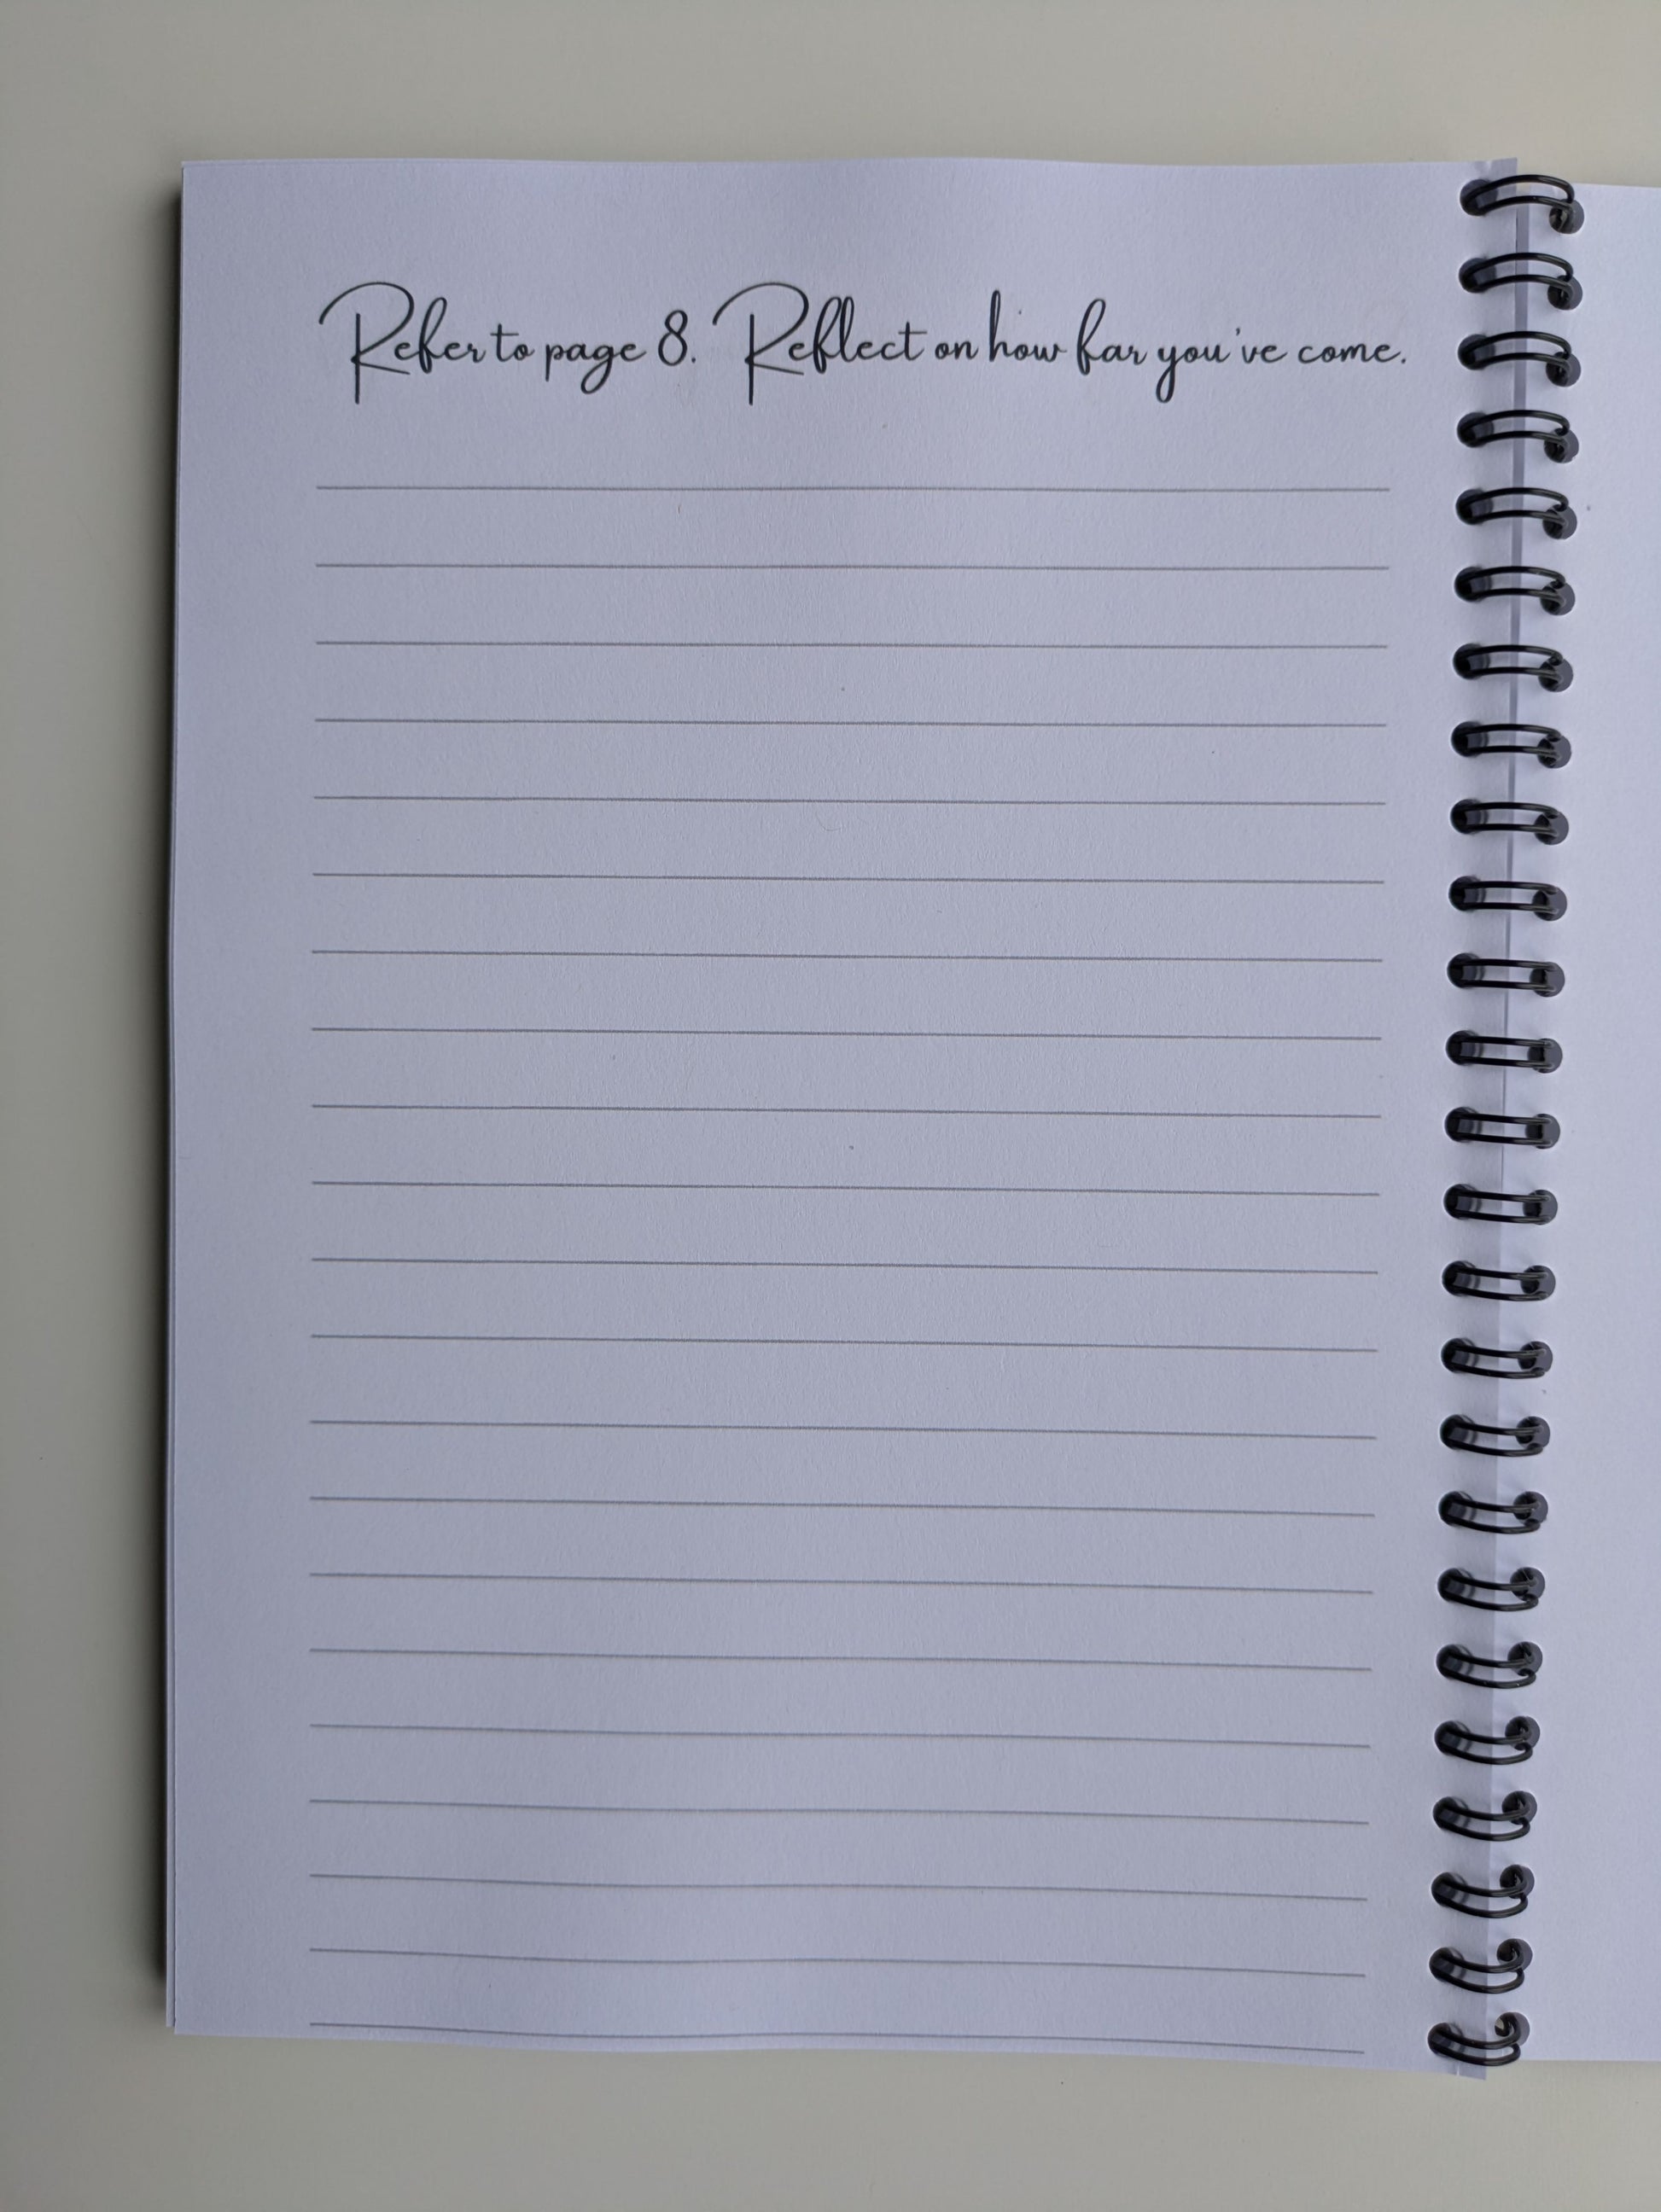 Refer to page 8. Reflect on how far you've come.